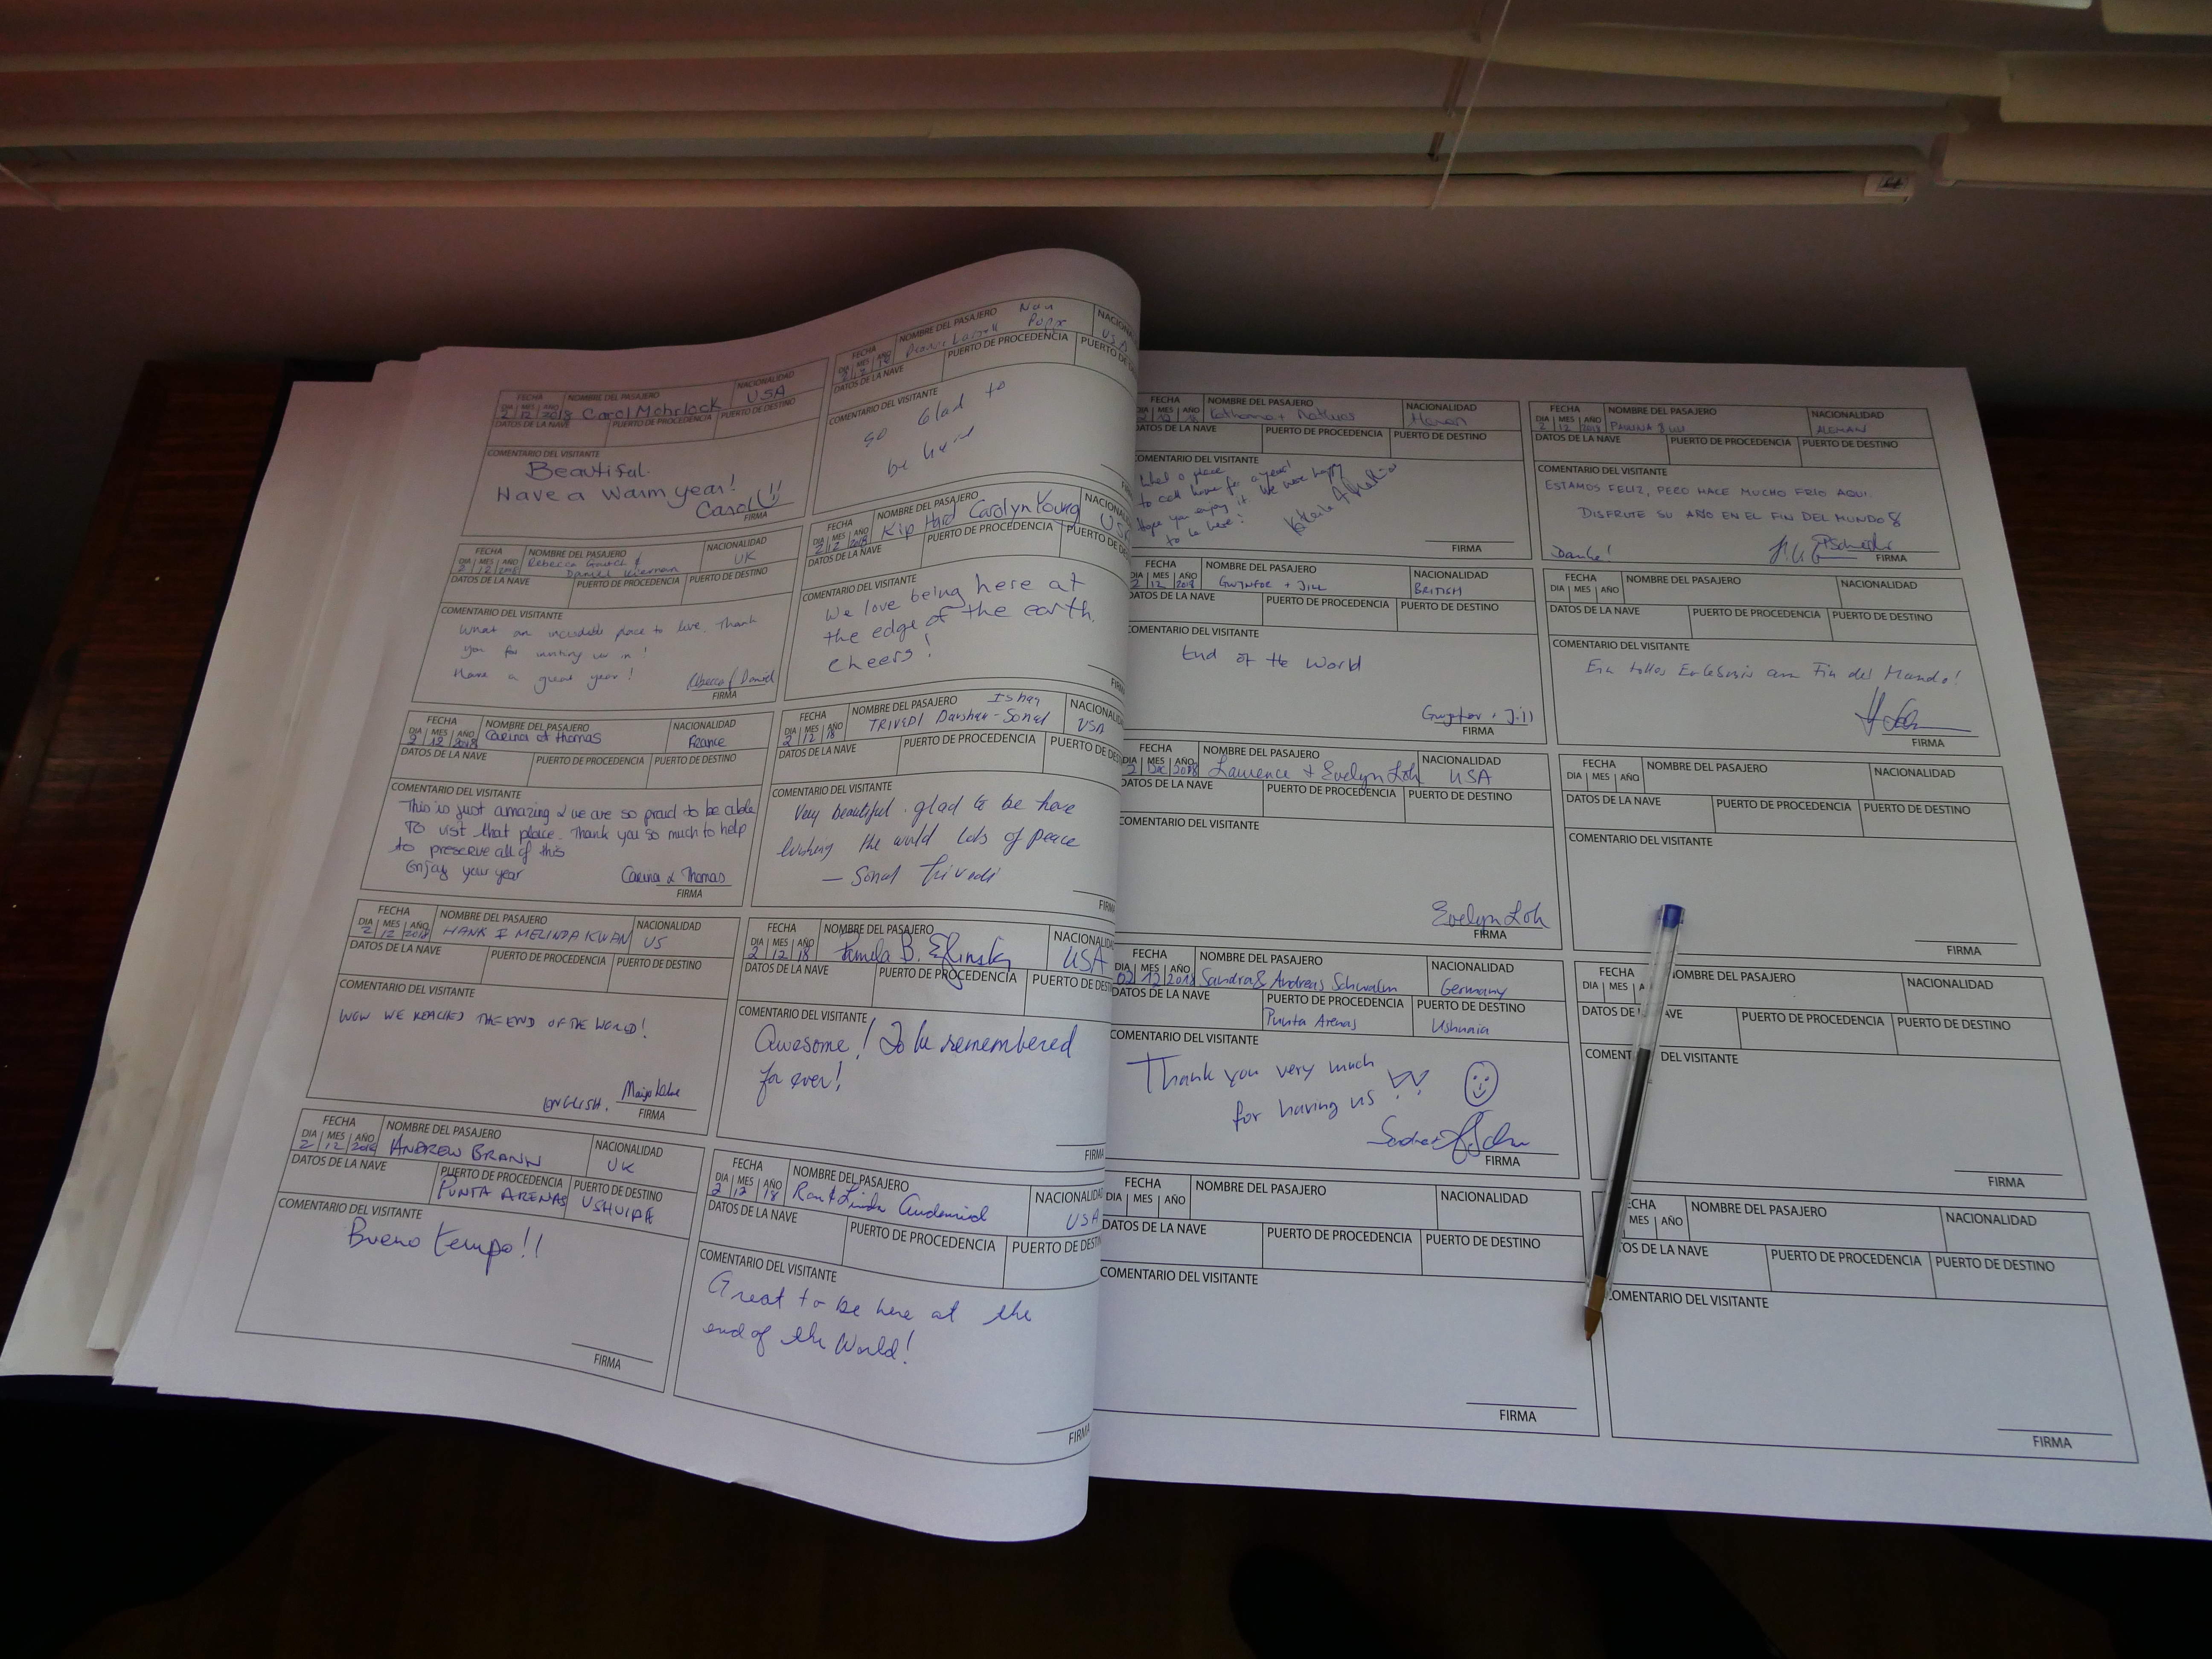 FECHA NOMBRE DEL PASAJERO NACIONALIDAD
DIA MES AÑO
2 12 2018 Carol Mohrlock USA
DATOS DE LA NAVE PUERTO DE PROCEDENCIA PUERTO DE DESTINO
COMENTARIO DEL VISITANTE
Beautiful.
Have a warm year!
Carol
FIRMA
FECHA NOMBRE DEL PASAJERO NACIONALIDAD
DIA MES AÑO
2 12 2018 Rebecca & UK
Daniel Kiernan
DATOS DE LA NAVE PUERTO DE PROCEDENCIA PUERTO DE DESTINO
COMENTARIO DEL VISITANTE
What an incredible place to live. Thank
you for inviting us in!
Have a great year!
Rebecca & Daniel
FIRMA
FECHA NOMBRE DEL PASAJERO NACIONALIDAD
DIA MES AÑO
2 12 2018 Carina et thomas France
DATOS DE LA NAVE PUERTO DE PROCEDENCIA PUERTO DE DESTINO
COMENTARIO DEL VISITANTE
This is just amazing & we are so proud to be able
To visit that place. Thank you so much to help
to preserve all of this
Enjoy your year
Carina & Thomas
FIRMA
FECHA NOMBRE DEL PASAJERO NACIONALIDAD
DIA MES AÑO
2 12 2018 HANK & MELINDA KWAN US
DATOS DE LA NAVE PUERTO DE PROCEDENCIA PUERTO DE DESTINO
COMENTARIO DEL VISITANTE
WOW WE REACHED THE END OF THE WORLD!
ENGLISH.
FIRMA
FECHA NOMBRE DEL PASAJERO NACIONALIDAD
DIA MES AÑO
2 12 2018 ANDREW BRANN UK
DATOS DE LA NAVE PUERTO DE PROCEDENCIA PUERTO DE DESTINO
PUNTA ARENAS USHUIPA
COMENTARIO DEL VISITANTE
Bueno tempo!!
FIRMA
FECHA NOMBRE DEL PASAJERO NACIONA
DIA MES AÑO
2 12 18 USA
DATOS DE LA NAVE PUERTO DE PROCEDENCIA PUERTO DE
COMENTARIO DEL VISITANTE
so Glad to
be here
FECHA NOMBRE DEL PASAJERO NACION
DIA MES AÑO
2 12 2018 Kip Hard Carolyn Young US
DATOS DE LA NAVE PUERTO DE PROCEDENCIA PUERTO DE
COMENTARIO DEL VISITANTE
We love being here at
the edge of the earth.
cheers!
FIRM
FECHA NOMBRE DEL PASAJERO Ishan NACIONAL
DIA MES AÑO
2 12 18 TRIVEDI Darshan-Sonal USA
DATOS DE LA NAVE PUERTO DE PROCEDENCIA PUERTO DE DE
COMENTARIO DEL VISITANTE
Very beautiful. glad to be here
Wishing the world lots of peace
— Sonal Trivedi
FIRM
FECHA NOMBRE DEL PASAJERO NACIONALID
DIA MES AÑO
2 12 18 Pamela B. USA
DATOS DE LA NAVE PUERTO DE PROCEDENCIA PUERTO DE DES
COMENTARIO DEL VISITANTE
Awesome! To be remembered
for ever!
FIRM
FECHA NOMBRE DEL PASAJERO NACIONALIDA
DIA MES AÑO
2 12 18 Ron & Linda USA
DATOS DE LA NAVE PUERTO DE PROCEDENCIA PUERTO DE DEST
COMENTARIO DEL VISITANTE
Great to be here at the
end of the World!
FIRMA
FECHA NOMBRE DEL PASAJERO NACIONALIDAD
DIA MES AÑO
2 12 18 Katharina +
DATOS DE LA NAVE PUERTO DE PROCEDENCIA PUERTO DE DESTINO
COMENTARIO DEL VISITANTE
What a place
to call home for a year!
Hope you enjoy it. We were happy
to be here!
FIRMA
FECHA NOMBRE DEL PASAJERO NACIONALIDAD
DIA MES AÑO
2 12 2018 GWYNFOR + JILL BRITISH
DATOS DE LA NAVE PUERTO DE PROCEDENCIA PUERTO DE DESTINO
COMENTARIO DEL VISITANTE
End of the World
Gwynfor + Jill
FIRMA
FECHA NOMBRE DEL PASAJERO NACIONALIDAD
DIA MES AÑO
2 Dec 2018 Lawrence + Evelyn Loh USA
DATOS DE LA NAVE PUERTO DE PROCEDENCIA PUERTO DE DESTINO
COMENTARIO DEL VISITANTE
Evelyn Loh
FIRMA
FECHA NOMBRE DEL PASAJERO NACIONALIDAD
DIA MES AÑO
02 12 2018 Sandra & Andreas Schwalm Germany
DATOS DE LA NAVE PUERTO DE PROCEDENCIA PUERTO DE DESTINO
Punta Arenas Ushuaia
COMENTARIO DEL VISITANTE
Thank you very much
for having us !!
FIRMA
FECHA NOMBRE DEL PASAJERO NACIONALIDAD
DIA MES AÑO
DATOS DE LA NAVE PUERTO DE PROCEDENCIA PUERTO DE DESTINO
COMENTARIO DEL VISITANTE
FIRMA
FECHA NOMBRE DEL PASAJERO NACIONALIDAD
DIA MES AÑO
2 12 2018 PAULINA & ULI ALEMAN
DATOS DE LA NAVE PUERTO DE PROCEDENCIA PUERTO DE DESTINO
COMENTARIO DEL VISITANTE
ESTAMOS FELIZ, PERO HACE MUCHO FRIO AQUI.
DISFRUTE SU AÑO EN EL FIN DEL MUNDO
Danke!
FIRMA
FECHA NOMBRE DEL PASAJERO NACIONALIDAD
DIA MES AÑO
DATOS DE LA NAVE PUERTO DE PROCEDENCIA PUERTO DE DESTINO
COMENTARIO DEL VISITANTE
Ein tolles Erlebnis am Fin del Mundo!
FIRMA
FECHA NOMBRE DEL PASAJERO NACIONALIDAD
DIA MES AÑO
DATOS DE LA NAVE PUERTO DE PROCEDENCIA PUERTO DE DESTINO
COMENTARIO DEL VISITANTE
FIRMA
FECHA OMBRE DEL PASAJERO NACIONALIDAD
DIA MES A
DATOS DE AVE PUERTO DE PROCEDENCIA PUERTO DE DESTINO
COMENT DEL VISITANTE
FIRMA
ECHA NOMBRE DEL PASAJERO NACIONALIDAD
MES AÑO
OS DE LA NAVE PUERTO DE PROCEDENCIA PUERTO DE DESTINO
OMENTARIO DEL VISITANTE
FIRMA